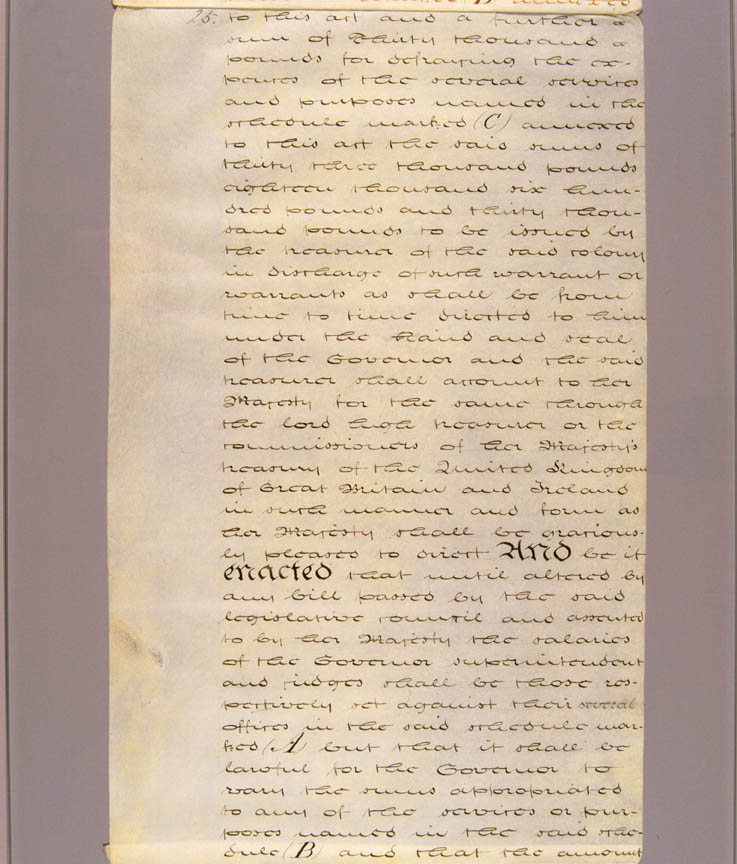 25. to this act and a further a
sum of Thirty thousand a
pounds for defraying the ex-
penses of the several services
and purposes named in the
schedule marked (C) annexed
to this act the said sums of
thirty three thousand pounds
eighteen thousand six hun-
dred pounds and thirty thou-
sand pounds to be issued by
the treasurer of the said colony
in discharge of such warrant or
warrants as shall be from
time to time directed to him
under the hand and seal
of the Governor and the said
treasurer shall account to her
Majesty for the same through
the lord high treasurer or the
commissioners of her Majesty's
treasury of the United Kingdom
of Great Britain and Ireland
in such manner and form as
her Majesty shall be gracious-
ly pleased to direct And be it
enacted that until altered by
any bill passed by the said
legislative council and assented
to by her Majesty the salaries
of the Governor superintendent
and judges shall be those res-
pectively set against their several
offices in the said schedule mar-
ked (A) but that it shall be
lawful for the Governor to
vary the sums appropriated
to any of the services or pur-
poses named in the said sche-
dule (B) and that the amount